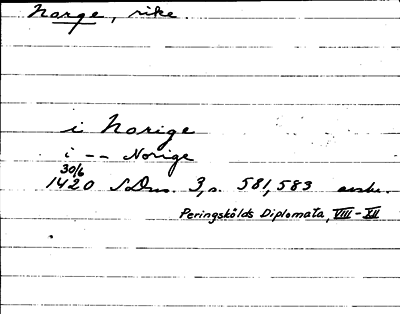 Norge, rike.
i Norige
i -- Norige
30/6
1420 SDns. 3, s. 581, 583 avskr.
Peringskölds Diplomata, VIII - XII